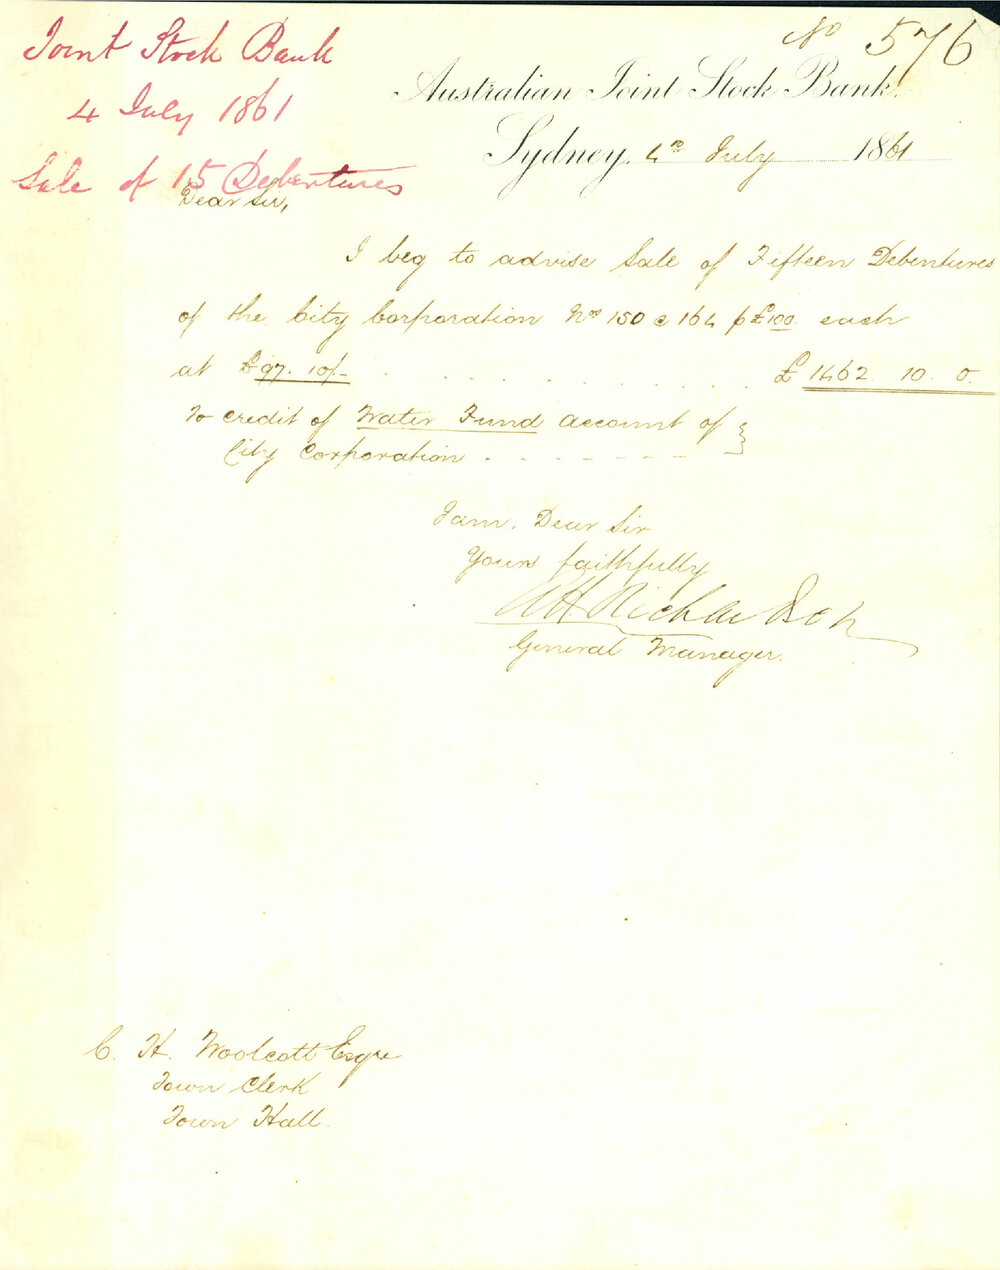 Joint Stock Bank
4 July 1861
Sale of 15 Debentures
No 576
Australian Joint Stock Bank.
Sydney, 4th July 1861
Dear Sir,
I beg to advise Sale of Fifteen Debentures
of the City Corporation Nos 150 @ 164 p £100 each
at £97. 10/- . . . . . . . . . . £1462. 10. 0.
To credit of Water Fund account of }
City Corporation . . . . . . .
I am, Dear Sir
Yours faithfully
WH Richardson
General Manager.
C. H. Woolcott Esqre
Town Clerk
Town Hall.